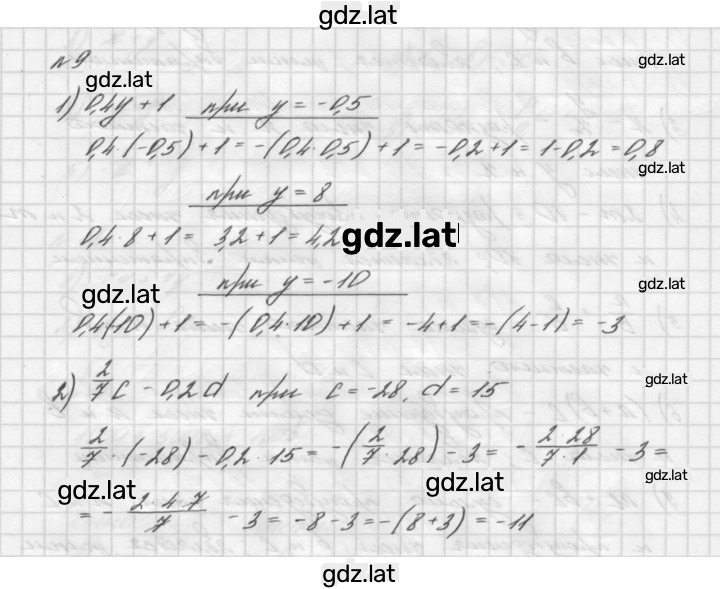 gdz.lat
№9
gdz.lat
gdz.lat
1) 0,4y + 1 при y = -0,5
0,4·(-0,5) + 1 = -(0,4·0,5) + 1 = -0,2+1 = 1-0,2 = 0,8
gdz.lat
при y = 8
0,4·8 + 1 = 3,2 + 1 = 4,2
gdz.lat
при y = -10
gdz.lat
gdz.lat
0,4(-10) + 1 = -(0,4·10) + 1 = -4+1 = -(4-1) = -3
2) 2/7 c - 0,2d при c = -28, d = 15
gdz.lat
2/7 · (-28) - 0,2·15 = -(2/7 · 28) - 3 = - 2·28/7·1 - 3 =
gdz.lat
gdz.lat
gdz.lat
= - 2·4·7/7 - 3 = -8-3 = -(8+3) = -11
gdz.lat